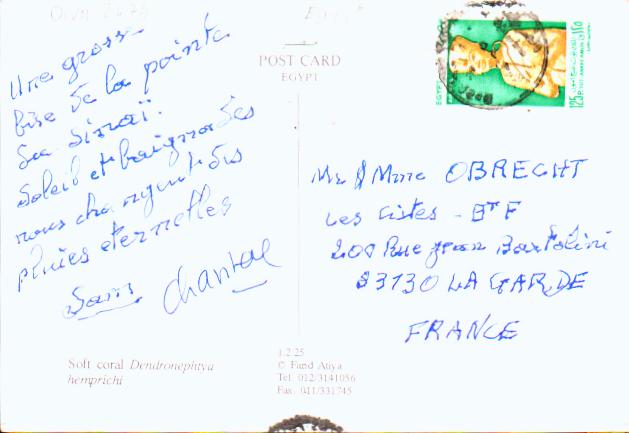 Une grosse
bise de la pointe
du Sinaï.
Soleil et baignades
nous changent des
pluies eternelles
Sam Chantal
POST CARD
EGYPT
EGYPT
125 P.
Mr & Mme OBRECHT
Les Cistes - Bt F
200 Rue Jean Bartolini
83130 LA GARDE
FRANCE
Soft coral Dendronephtya
hemprichi
1.2.25
© Farid Atiya
Tel: 012/3141056
Fax: 011/331745